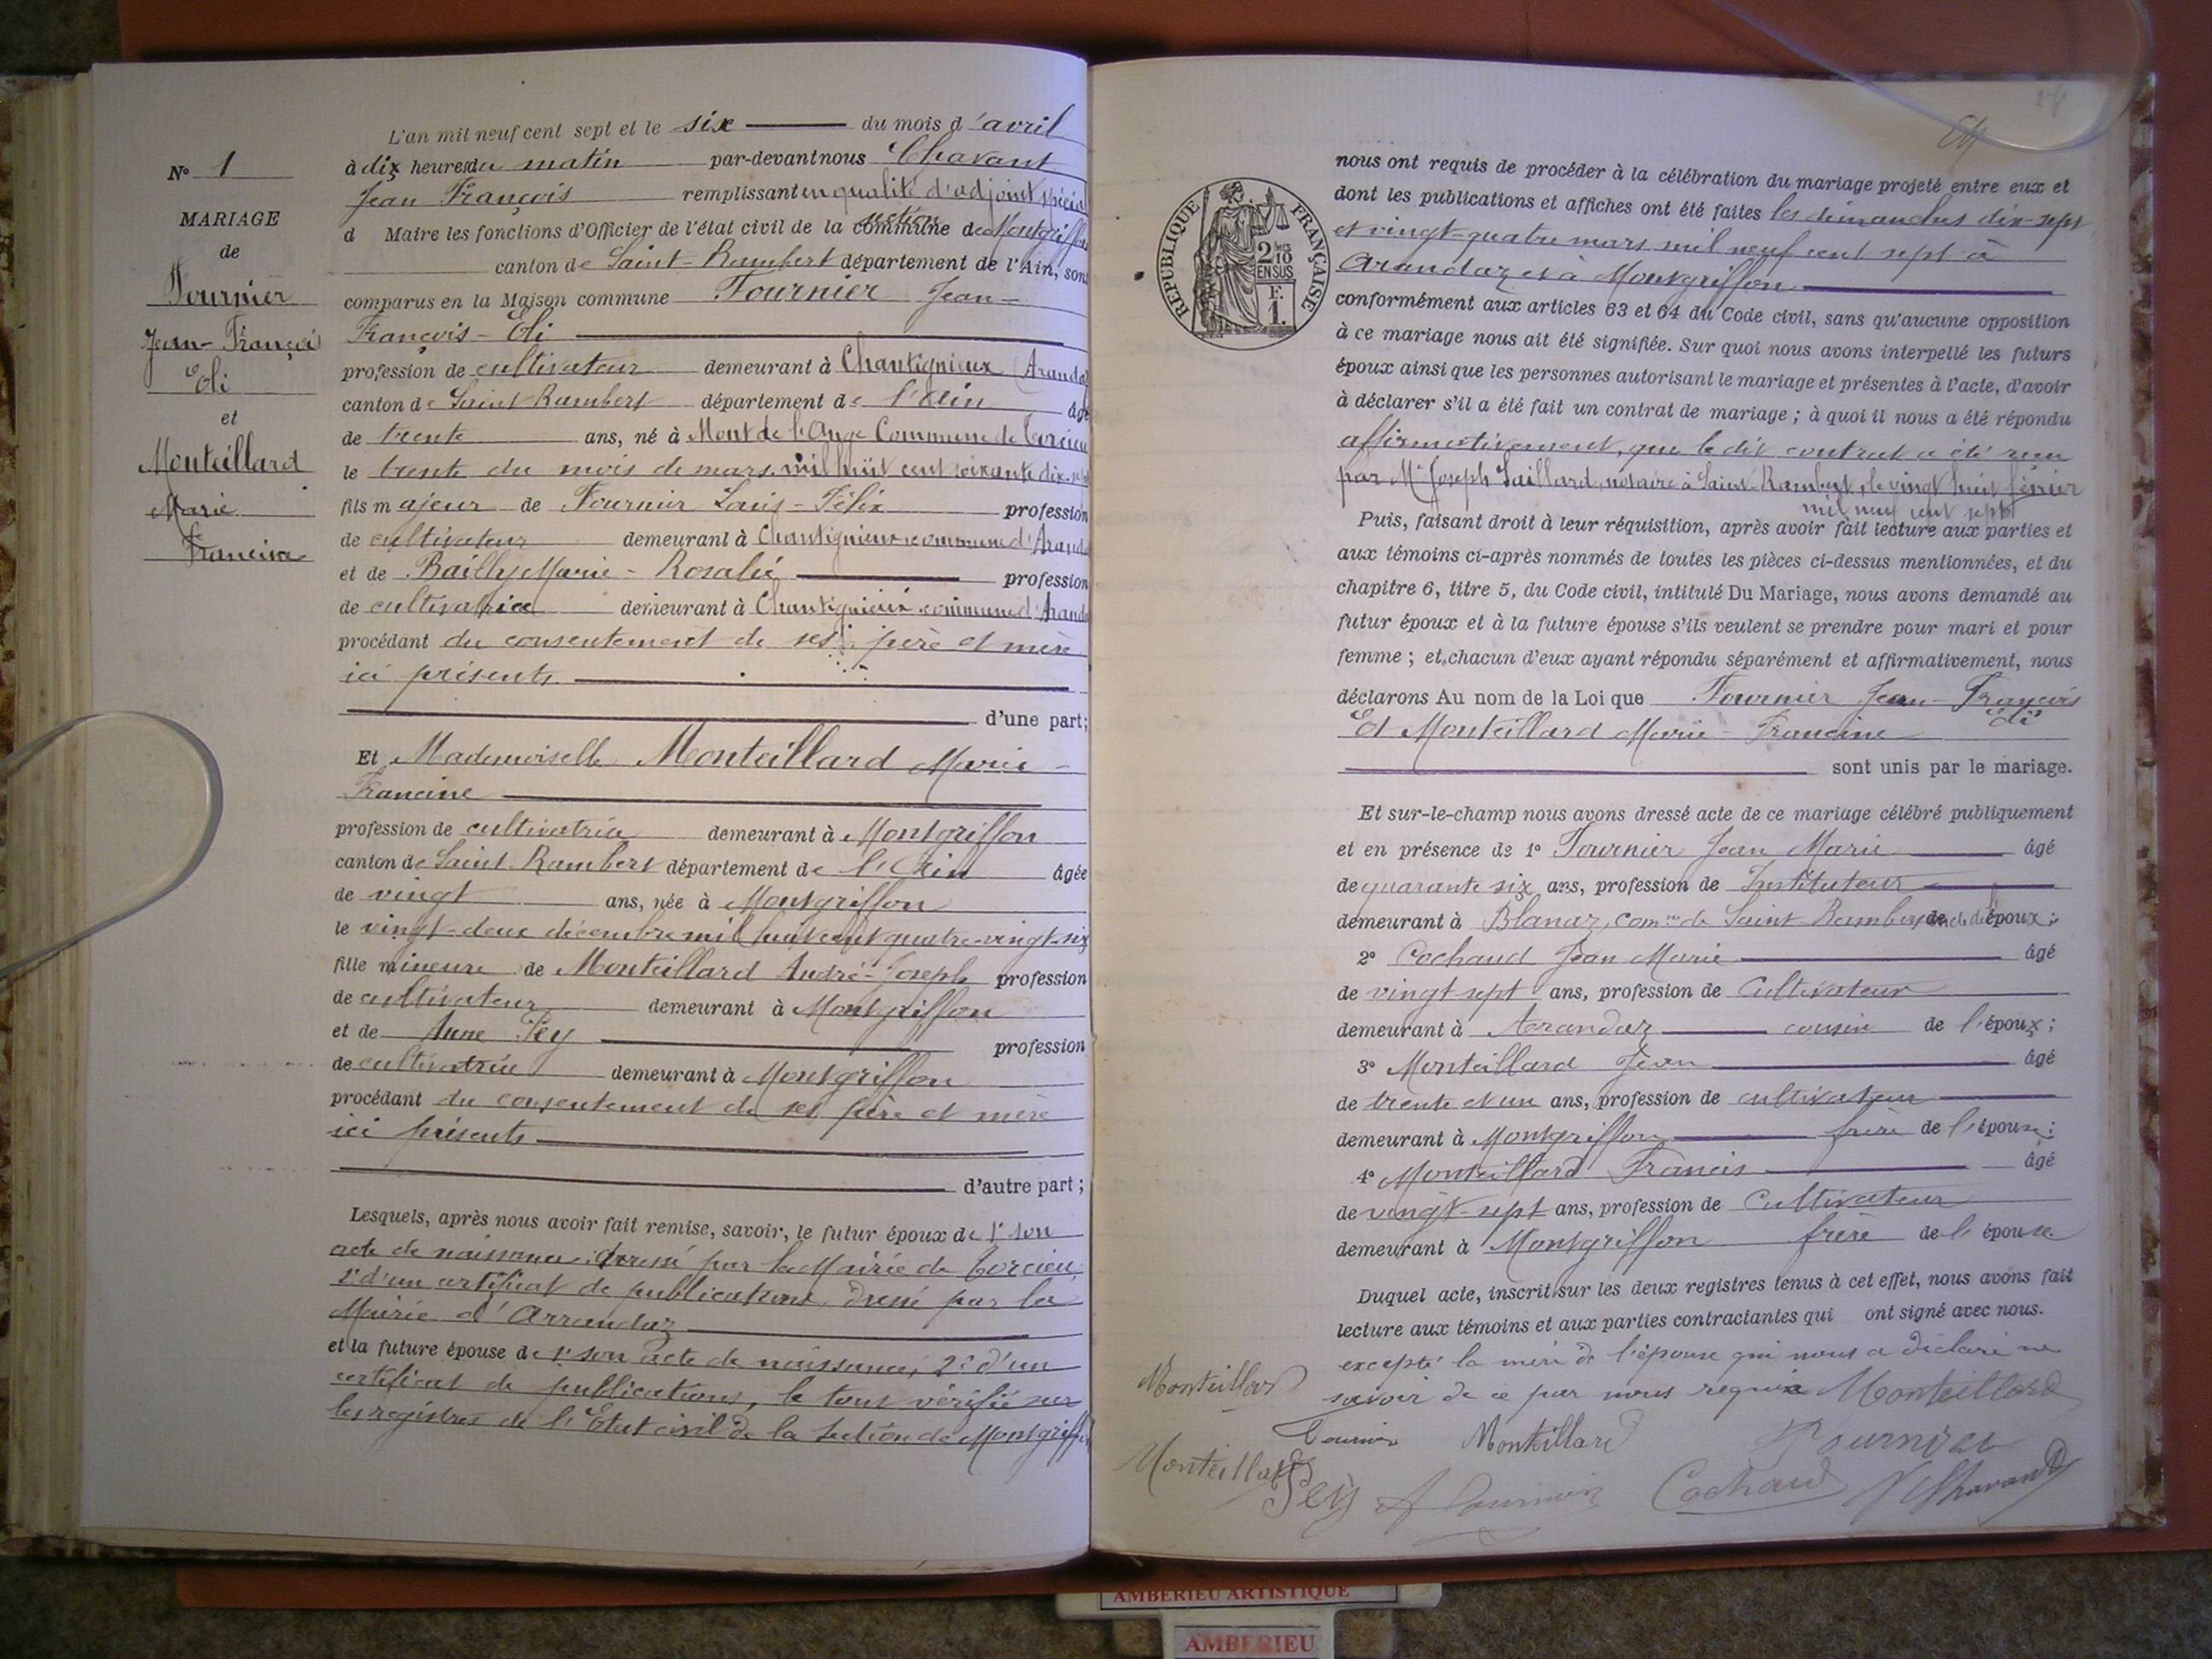 N° 1
MARIAGE
de
Fournier
Jean-François
Eli
et
Monteillard
Marie
Francine
L'an mil neuf cent sept et le six du mois d'avril
à dix heures du matin par-devant nous Chavant
Jean François remplissant en qualité d'adjoint spécial
d Maire les fonctions d'Officier de l'état civil de la commune section de Montgriffon
canton de Saint-Rambert département de l'Ain, sont
comparus en la Maison commune Fournier Jean-
François-Eli
profession de cultivateur demeurant à Chantignieux (Arandas
canton de Saint Rambert département de l'Ain âgé
de trente ans, né à Mont de l'Ange Commune de Torcieu
le trente du mois de mars mil huit cent soixante dix-sept
fils majeur de Fournier Louis-Félix profession
de cultivateur demeurant à Chantignieux commune d'Arandas
et de Bailly Marie-Rosalie profession
de cultivatrice demeurant à Chantignieux commune d'Arandas
procédant du consentement de ses père et mère
ici présents
d'une part;
Et Mademoiselle Monteillard Marie-
Francine
profession de cultivatrice demeurant à Montgriffon
canton de Saint-Rambert département de l'Ain âgée
de vingt ans, née à Montgriffon
le vingt-deux décembre mil huit cent quatre-vingt-six
fille mineure de Monteillard André-Joseph profession
de cultivateur demeurant à Montgriffon
et de Anne Pey profession
de cultivatrice demeurant à Montgriffon
procédant du consentement de ses père et mère
ici présents
d'autre part;
Lesquels, après nous avoir fait remise, savoir, le futur époux de 1° son
acte de naissance dressé par la Mairie de Torcieu,
2° d'un certificat de publications, dressé par la
Mairie d'Arrandaz
et la future épouse de 1° son acte de naissance, 2° d'un
certificat de publications, le tout vérifié sur
les registres de l'Etat civil de la Section de Montgriffon
RÉPUBLIQUE FRANÇAISE
2/10 EN SUS
F. 1.
nous ont requis de procéder à la célébration du mariage projeté entre eux et
dont les publications et affiches ont été faites les dimanches dix-sept
et vingt-quatre mars mil neuf cent sept à
Arandaz et à Montgriffon
conformément aux articles 63 et 64 du Code civil, sans qu'aucune opposition
à ce mariage nous ait été signifiée. Sur quoi nous avons interpellé les futurs
époux ainsi que les personnes autorisant le mariage et présentes à l'acte, d'avoir
à déclarer s'il a été fait un contrat de mariage; à quoi il nous a été répondu
affirmativement, que le dit contrat a été reçu
par Me Joseph Saillard, notaire à Saint-Rambert, le vingt huit février
mil neuf cent sept
Puis, faisant droit à leur réquisition, après avoir fait lecture aux parties et
aux témoins ci-après nommés de toutes les pièces ci-dessus mentionnées, et du
chapitre 6, titre 5, du Code civil, intitulé Du Mariage, nous avons demandé au
futur époux et à la future épouse s'ils veulent se prendre pour mari et pour
femme; et, chacun d'eux ayant répondu séparément et affirmativement, nous
déclarons Au nom de la Loi que Fournier Jean-François
Eli
Et Monteillard Marie-Francine
sont unis par le mariage.
Et sur-le-champ nous avons dressé acte de ce mariage célébré publiquement
et en présence de 1° Fournier Jean Marie âgé
de quarante six ans, profession de Instituteur
demeurant à Blanaz, comne de Saint-Rambert, oncle de l'époux;
2° Cochaud Jean Marie âgé
de vingt-sept ans, profession de Cultivateur
demeurant à Arandaz cousin de l'époux;
3° Monteillard Jean âgé
de trente et un ans, profession de cultivateur
demeurant à Montgriffon frère de l'épouse;
4° Monteillard Francis âgé
de vingt-sept ans, profession de Cultivateur
demeurant à Montgriffon frère de l'épouse
Duquel acte, inscrit sur les deux registres tenus à cet effet, nous avons fait
lecture aux témoins et aux parties contractantes qui ont signé avec nous.
excepté la mère de l'épouse qui nous a déclaré ne
savoir de ce par nous requise Monteillard
Monteillard
Fournier Monteillard Fournier
Monteillard Pey Fournier Cochaud Chavant
AMBERIEU ARTISTIQUE
AMBERIEU